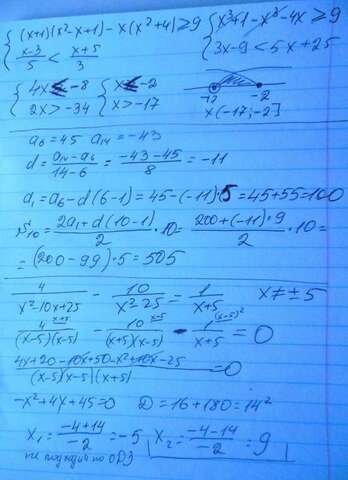 { (x+1)(x²-x+1) - x(x²+4) ≥ 9 { x³+1-x³-4x ≥ 9
x-3/5 < x+5/3 3x-9 < 5x+25
{ 4x ≤ -8 { x ≤ -2
2x > -34 x > -17 -17 -2
x(-17;-2]
a₆=45 a₁₄=-43
d = a₁₄-a₆/14-6 = -43-45/8 = -11
a₁ = a₆ - d(6-1) = 45-(-11)·5 = 45+55=100
S₁₀ = 2a₁+d(10-1)/2 · 10 = 200+(-11)·9/2 · 10 =
= (200-99)·5 = 505
4/x²-10x+25 - 10/x²-25 = 1/x+5 x≠±5
4^(x+5)/(x-5)(x-5) - 10^(x-5)/(x+5)(x-5) - 1^(x-5)²/x+5 = 0
4x+20-10x+50-x²+10x-25/(x-5)(x-5)(x+5) = 0
-x²+4x+45=0 D=16+180=14²
x₁ = -4+14/-2 = -5 x₂ = -4-14/-2 = 9
не подходит по ОДЗ